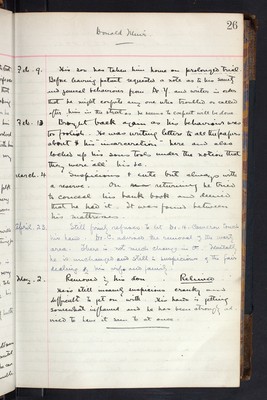 26
Donald Muir
Feb. 9. His son has taken him home on prolonged trial
Before leaving patient requested a note as to his sanity
and general behaviour from Dr. Y. and writer in order
that he might confute any one who troubled or called
after him in the street as he seems to expect will be done
Feb. 13 Brought back again as his behaviour was
too foolish. He was writing letters to all the papers
about "his incarceration" here and also
locked up his sons tools under the notion that
they were all his
March. 4 Suspicious & cute but always with
a reserve. On returning he tried
to conceal his bank book and denied
that he had it. It was found between
his mattresses.
April 23. Still firmly refuses to let Dr. Cameron touch
his hand. Dr. advised the removal of the
area There is not much change in it Mentally
he is unchanged and still is suspicious of the fair
dealing of his wife and family.
May. 2. Removed by his son Relieved
He is still insanely suspicious cranky and
difficult to get on with His hand is getting
somewhat inflamed and he has been strongly
to have it seen to at once